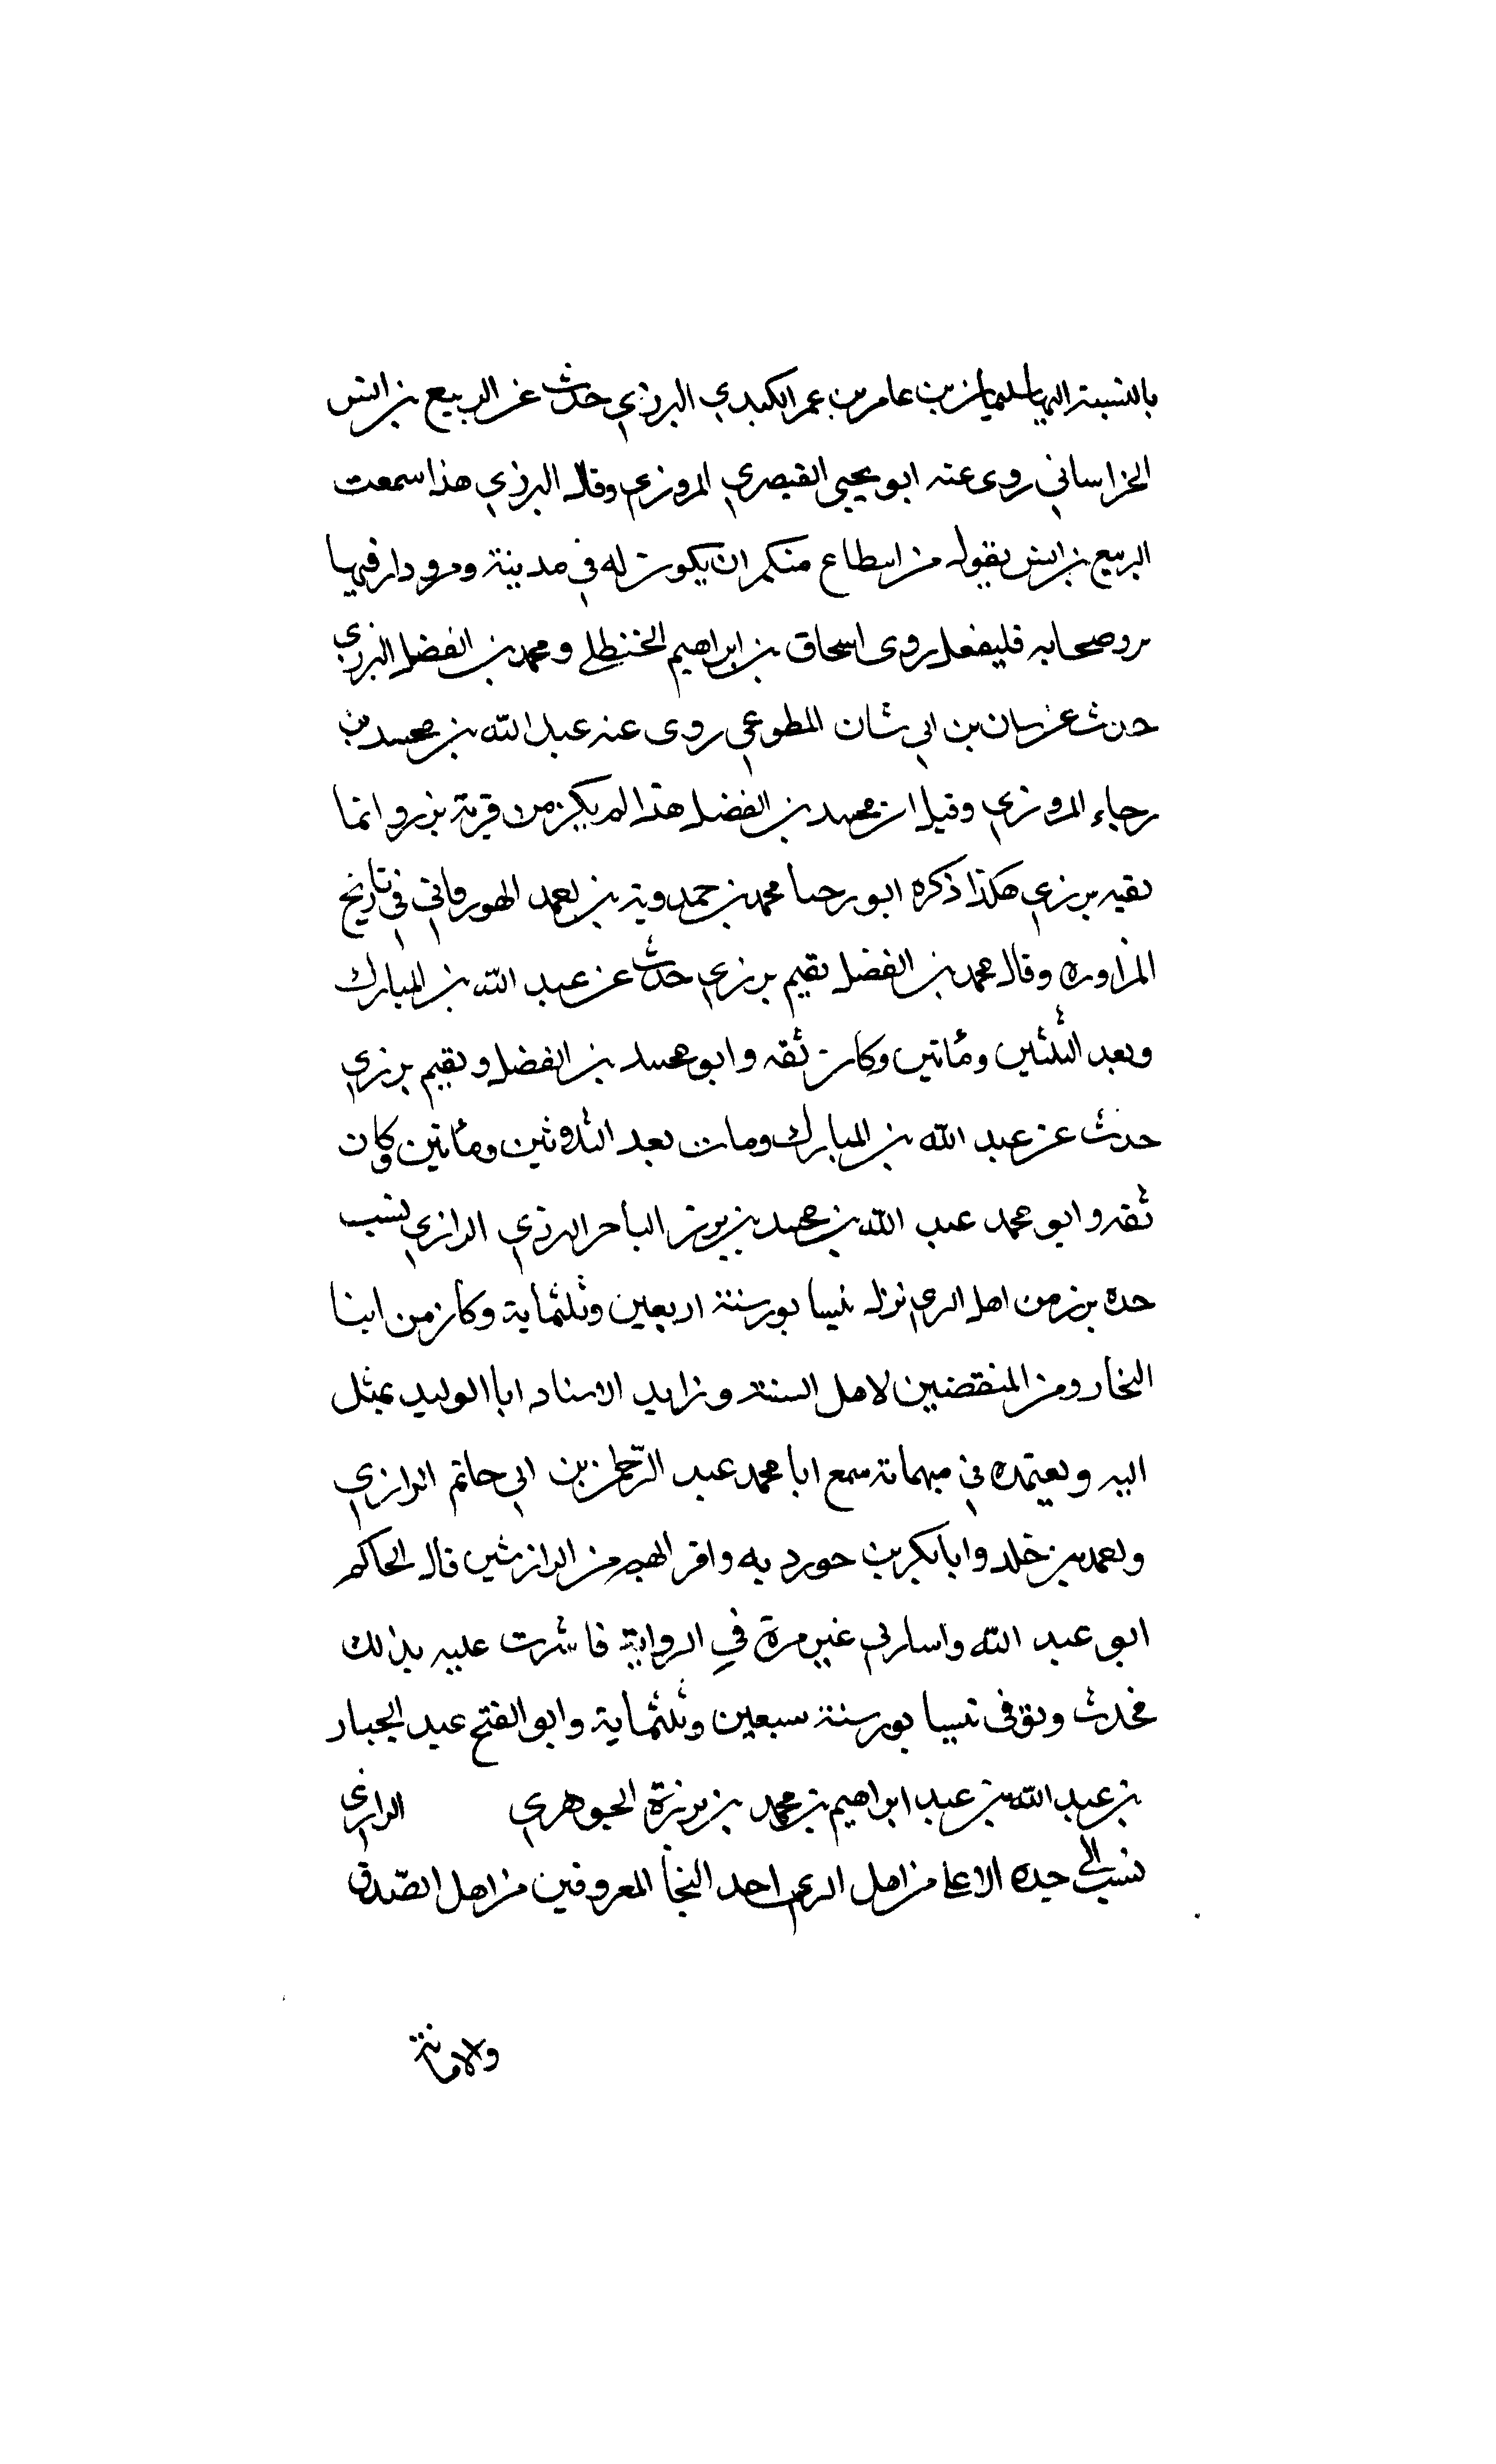 بالنسبة اليها سليمان بن عامر بن عمر الكندي البرزي حدث عن الربيع بن انس
الخراساني روى عنه ابو يحيى القيصري المروزي وقال البرزي هذا سمعت
الربيع بن انس يقول من اسطاع منكم ان يكون له في مدينة ومرو دار فيها
فليفعل روى اسحاق بن ابراهيم الخنطلي ومحمد بن الفضل البرزي
حدث عن بن ابي شان المطوعي روى عنه عبد الله بن محمد بن
رجاء المروزي وقيل ان محمد بن الفضل هذا لم يكن من قرية برز وانما
بقيه برزي هكذا ذكره ابو رجا محمد بن حمدوية بن احمد الهورقاني في تاريخ
المراوزه وقال محمد بن الفضل يقيم برزي حدث عن عبد الله بن المبارك
وبعد الثلثين ومأتين وكان ثقه وابو محمد بن الفضل ويقيم برزي
حدث عن عبد الله بن المبارك ومات بعد الثلاثين ومأتين وكان
ثقه وابو محمد عبد الله بن محمد بن برز البرزي الرازي نسب
جده برز من اهل الري نزل نيسابور سنة اربعين وثلثماية وكان من ابنا
التجار ومن المنقضين لاهل السنة وزايد الاسناد ابا الوليد بمثل
اليه ويعتمده في مهماته سمع ابا محمد عبد الرحمن بن ابي حاتم الرازي
واحمد بن خلد وابا بكر بن واقرانهم من قال الحاكم
ابو عبد الله واسارني غير مرة في الرواية فاشرت عليه بذلك
فحدث وتوفى نيسابور سنة سبعين وثلثماية وابو الفتح عبد الجبار
بن عبد الله بن عبد ابراهيم بن محمد بن برزة الجوهري الرازي
نسب الى جده الاعلى من اهل الري احد التجا المعروفين من اهل الصدق
ولامانة